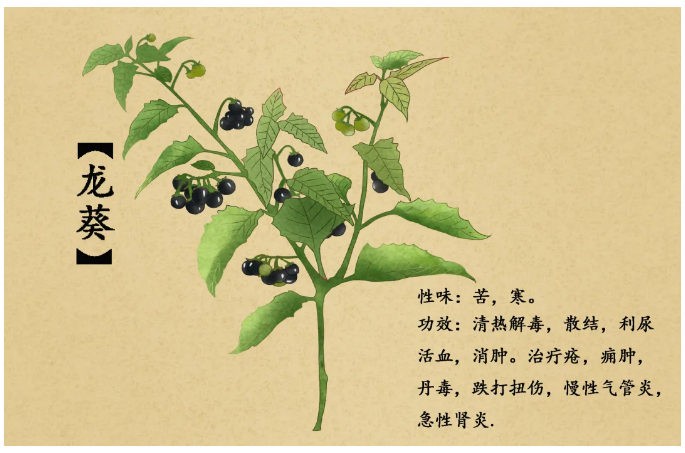 【龙葵】
性味：苦，寒。
功效：清热解毒，散结，利尿
活血，消肿。治疔疮，痈肿，
丹毒，跌打扭伤，慢性气管炎，
急性肾炎.